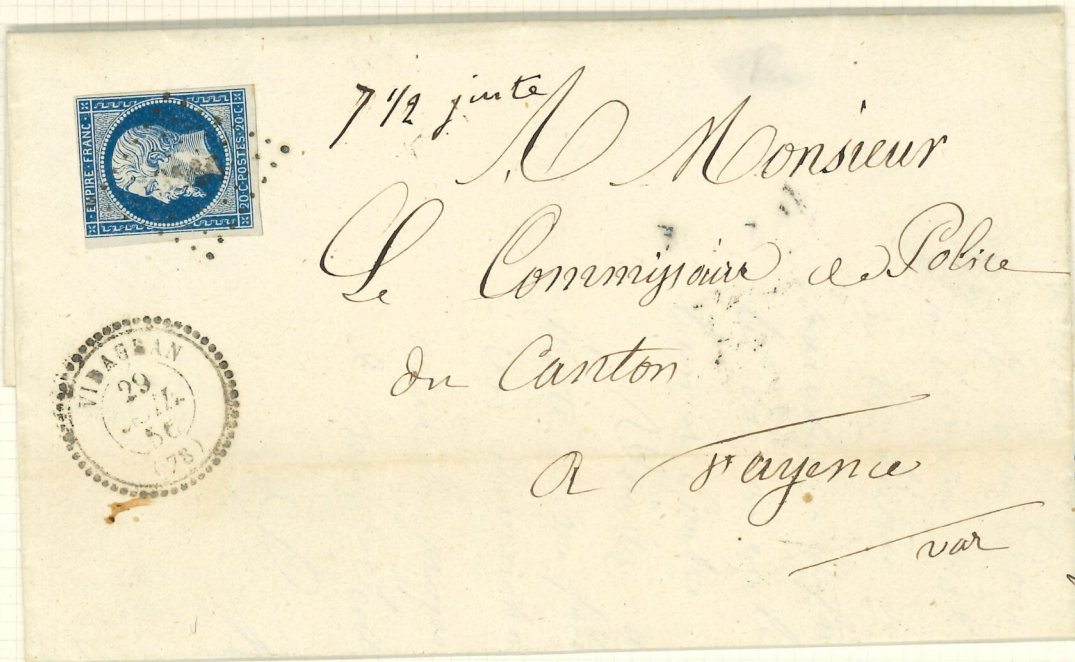 EMPIRE · FRANC ·
20 · C · POSTES · 20 · C ·
7 1/2 juste
A Monsieur
Le Commissaire de Police
du Canton
a Fayence
var
VIDAUBAN
29
JUIL
56
(78)